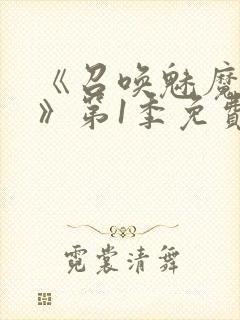 《召唤魅魔
》第1季免費
霓裳清舞